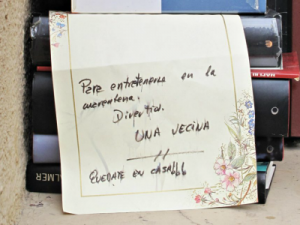 Para entretenerse en la
cuarentena.
Divertíos.
UNA VECINA
QUEDATE EN CASA!!!
ALMER